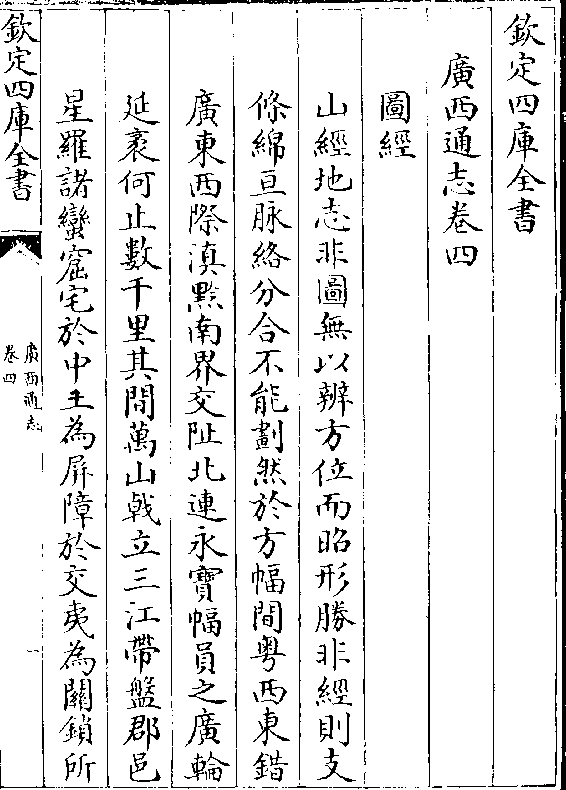 欽定四庫全書
廣西通志卷四
圖經
山經地志非圖無以辨方位而昭形勝非經則支
條綿亘脉絡分合不能劃然於方幅間粤西東錯
廣東西際滇黔南界交阯北連永寶幅員之廣輪
延袤何止數千里其間萬山㦸立三江帶盤郡邑
星羅諸蠻窟宅於中土為屏障於交夷為關鎖所
欽定四庫全書
廣西通志
卷四
一